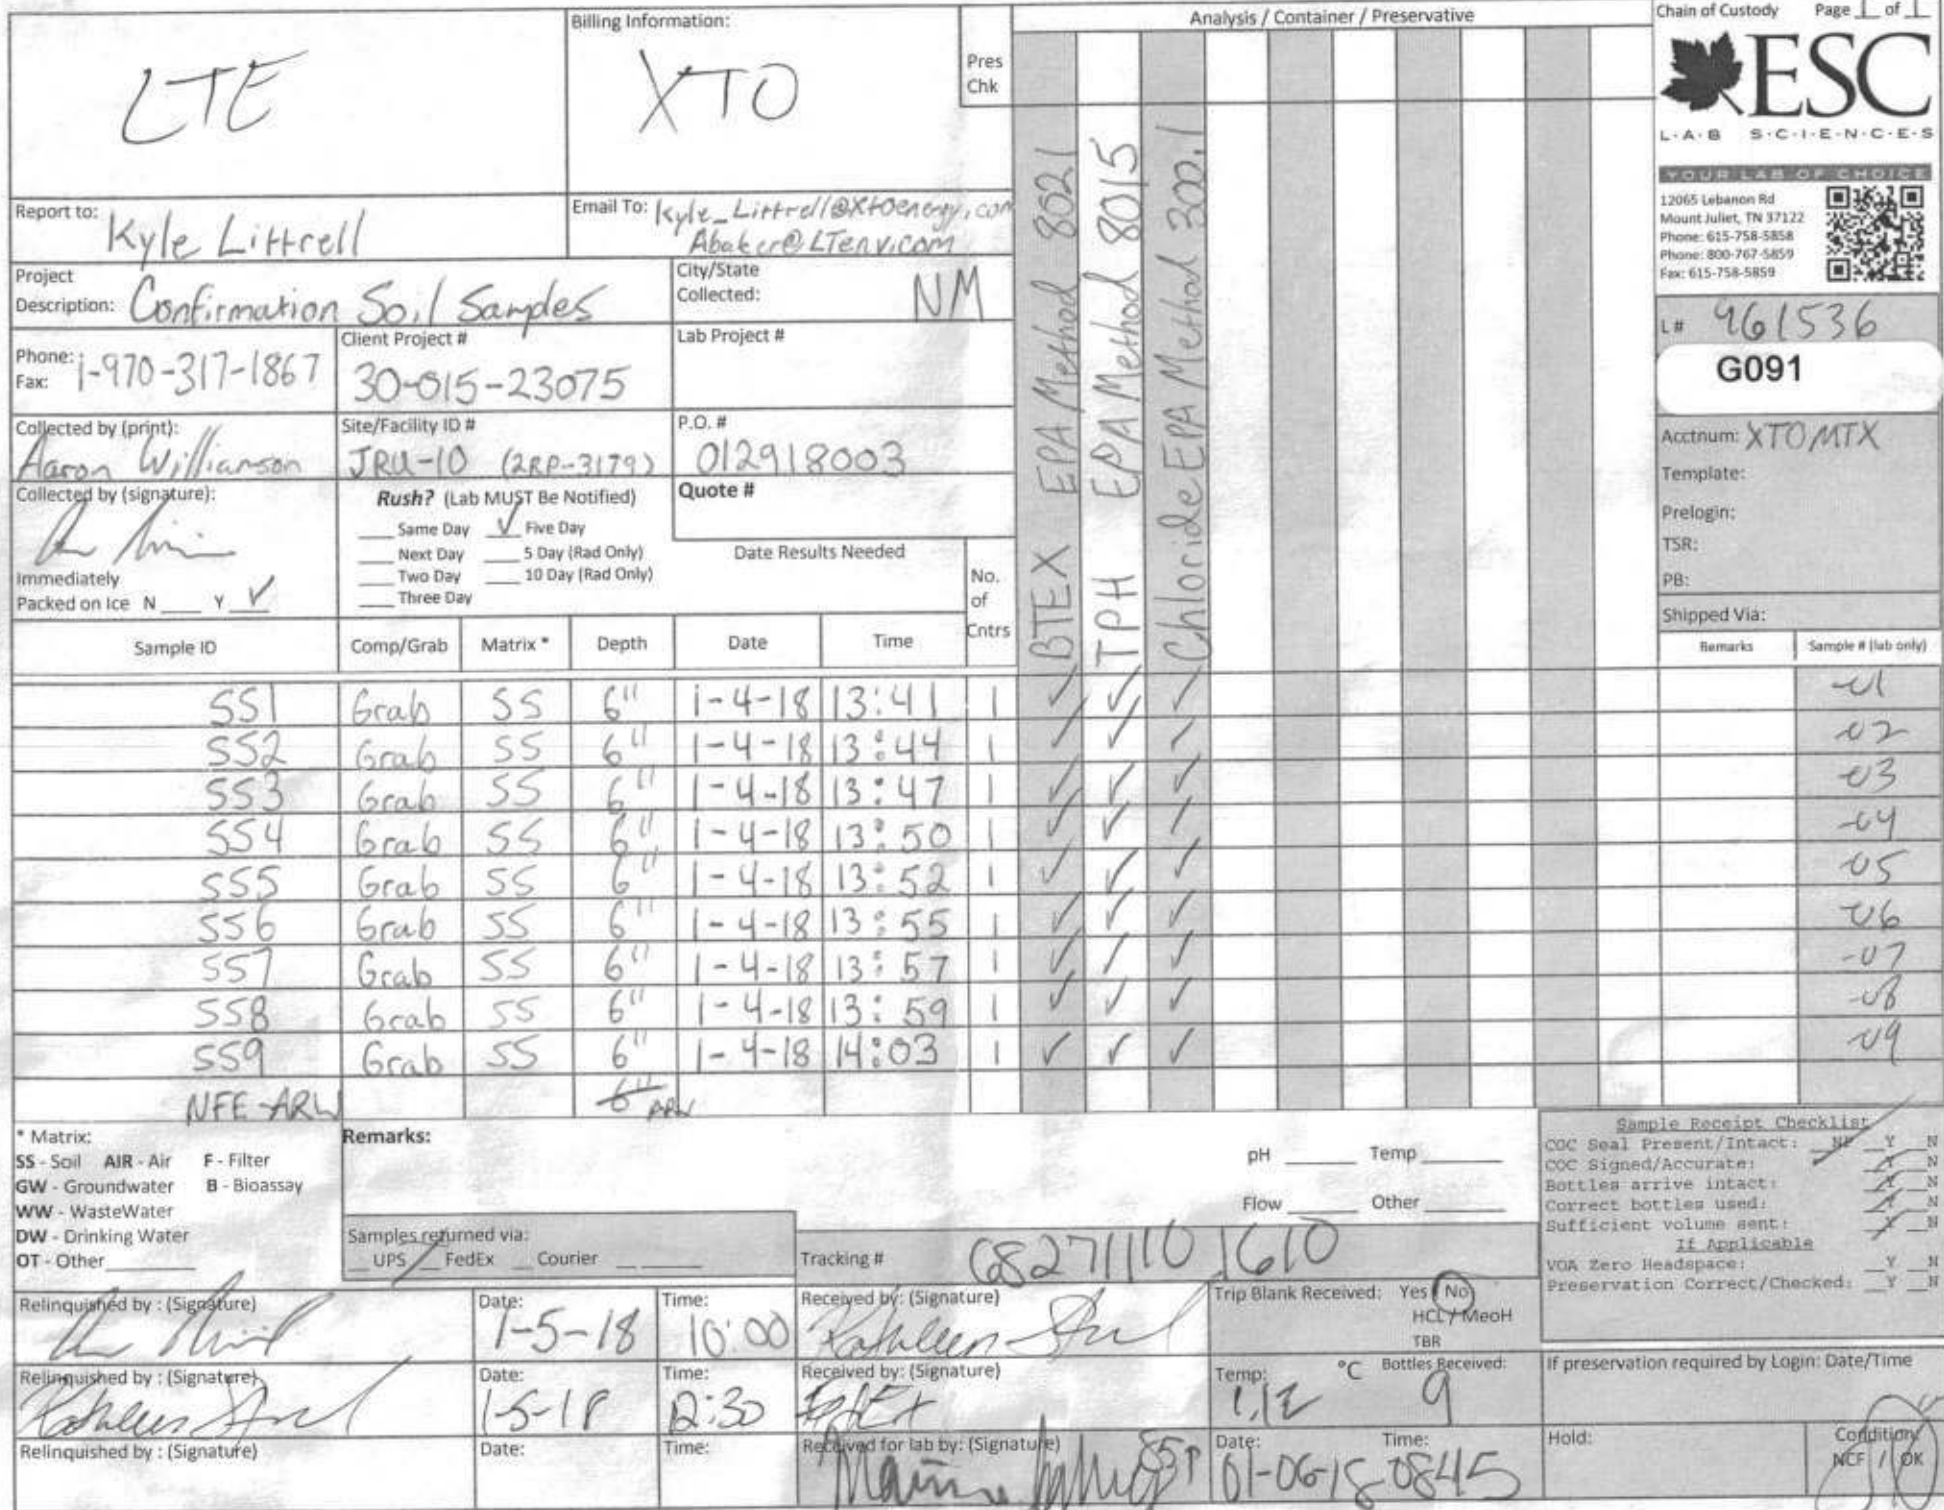 Billing Information:
Analysis / Container / Preservative
Chain of Custody Page 1 of 1
LTE
XTO
Pres
Chk
ESC
L·A·B S·C·I·E·N·C·E·S
YOUR LAB OF CHOICE
12065 Lebanon Rd
Mount Juliet, TN 37122
Phone: 615-758-5858
Phone: 800-767-5859
Fax: 615-758-5859
Report to: Kyle Littrell
Email To: Kyle_Littrell@xtoenergy.com
Abaker@LTenv.com
Project
Description: Confirmation Soil Samples
City/State
Collected: NM
L# 961536
G091
Phone: 1-970-317-1867
Fax:
Client Project #
30-015-23075
Lab Project #
Collected by (print):
Aaron Williamson
Site/Facility ID #
JRU-10 (2RP-3179)
P.O. #
012918003
Acctnum: XTOMTX
Template:
Prelogin:
TSR:
PB:
Shipped Via:
Collected by (signature):
Rush? (Lab MUST Be Notified)
Quote #
___ Same Day ✓ Five Day
___ Next Day ___ 5 Day (Rad Only)
___ Two Day ___ 10 Day (Rad Only)
___ Three Day
Date Results Needed
Immediately
Packed on Ice N ___ Y ✓
No.
of
Cntrs
BTEX EPA Method 8021
TPH EPA Method 8015
Chloride EPA Method 300.1
Sample ID Comp/Grab Matrix * Depth Date Time Remarks Sample # (lab only)
SS1 Grab SS 6" 1-4-18 13:41 1 ✓ ✓ ✓ -01
SS2 Grab SS 6" 1-4-18 13:44 1 ✓ ✓ ✓ -02
SS3 Grab SS 6" 1-4-18 13:47 1 ✓ ✓ ✓ -03
SS4 Grab SS 6" 1-4-18 13:50 1 ✓ ✓ ✓ -04
SS5 Grab SS 6" 1-4-18 13:52 1 ✓ ✓ ✓ -05
SS6 Grab SS 6" 1-4-18 13:55 1 ✓ ✓ ✓ -06
SS7 Grab SS 6" 1-4-18 13:57 1 ✓ ✓ ✓ -07
SS8 Grab SS 6" 1-4-18 13:59 1 ✓ ✓ ✓ -08
SS9 Grab SS 6" 1-4-18 14:03 1 ✓ ✓ ✓ -09
NFE-ARW 6" ARW
* Matrix:
SS - Soil AIR - Air F - Filter
GW - Groundwater B - Bioassay
WW - WasteWater
DW - Drinking Water
OT - Other
Remarks:
pH ___ Temp ___
Flow ___ Other ___
Samples returned via:
__ UPS __ FedEx __ Courier
Tracking #
Sample Receipt Checklist
COC Seal Present/Intact: NP Y N
COC Signed/Accurate: Y N
Bottles arrive intact: Y N
Correct bottles used: Y N
Sufficient volume sent: Y N
If Applicable
VOA Zero Headspace: Y N
Preservation Correct/Checked: Y N
Relinquished by : (Signature)
Date: 1-5-18
Time: 10:00
Received by: (Signature)
Trip Blank Received: Yes / No
HCL / MeoH
TBR
Relinquished by : (Signature)
Date: 1-5-18
Time: 12:30
Received by: (Signature)
FedEx
Temp: °C
Bottles Received: 9
If preservation required by Login: Date/Time
Relinquished by : (Signature)
Date:
Time:
Received for lab by: (Signature)
Date: 01-06-18
Time: 0845
Hold:
Condition:
NCF / OK